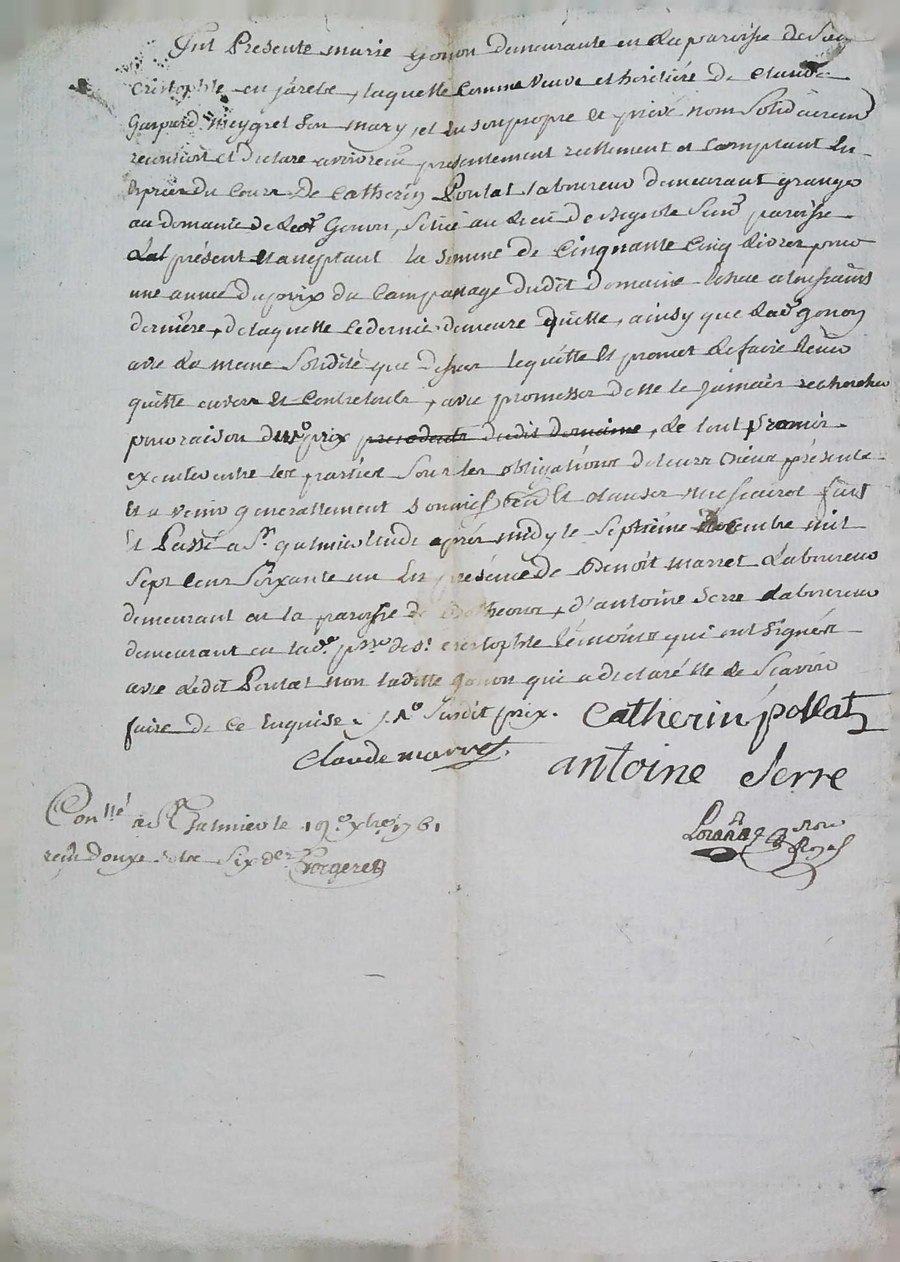 fut Presente marie Gonon demeurante en la paroisse de St
Cristophle en járets, laquelle Comme veuve et heritiére de Claude
Gaspard meygret son mary, et en son propre et privé nom Solidairem
reconnoit et declare avoir reçu présentement reellement et Comptant En
Espèces du Cours De Catherin Poulat laboureur demeurant granger
au domaine de lad Gonon, Scitué au Lieu De Susd paroisse
present et acceptant la Somme de Cinquante Cinq Livres pour
une année du prix du Campanage dudit Domaine Echue a la toussaints
derniére, de laquelle Ce dernier demeure quitte, ainsy que lad gonon
avec la meme Solidité que dessus le quitte et promet de faire tenir
quitte envers et Contre tous, avec promesse de ne le jamais rechercher
pour raison du prix precedents dudit domaine, de tout promis
executer entre les parties Sous les obligations de leurs biens présents
et a venir generallement Soumis et Clauses necessaires fait
et Passé a St galmier Etude aprés midy le Septiéme Novembre mil
Sept Cent Soixante un En présence de Benoit marret Laboureur
demeurant en la paroisse de , d'antoine Serre Laboureur
demeurant en lad. pnne de St. Cristophle témoins qui ont Signés
avec ledit Poulat non laditte gonon qui a declaré ne le Scavoir
faire de Ce Enquise . Susdit prix. Catherin pollat
Claude marret antoine Serre
Conllé á St Galmier le 19e xbre 1761
reçu Douze Sols Six den Forgeret
Royal